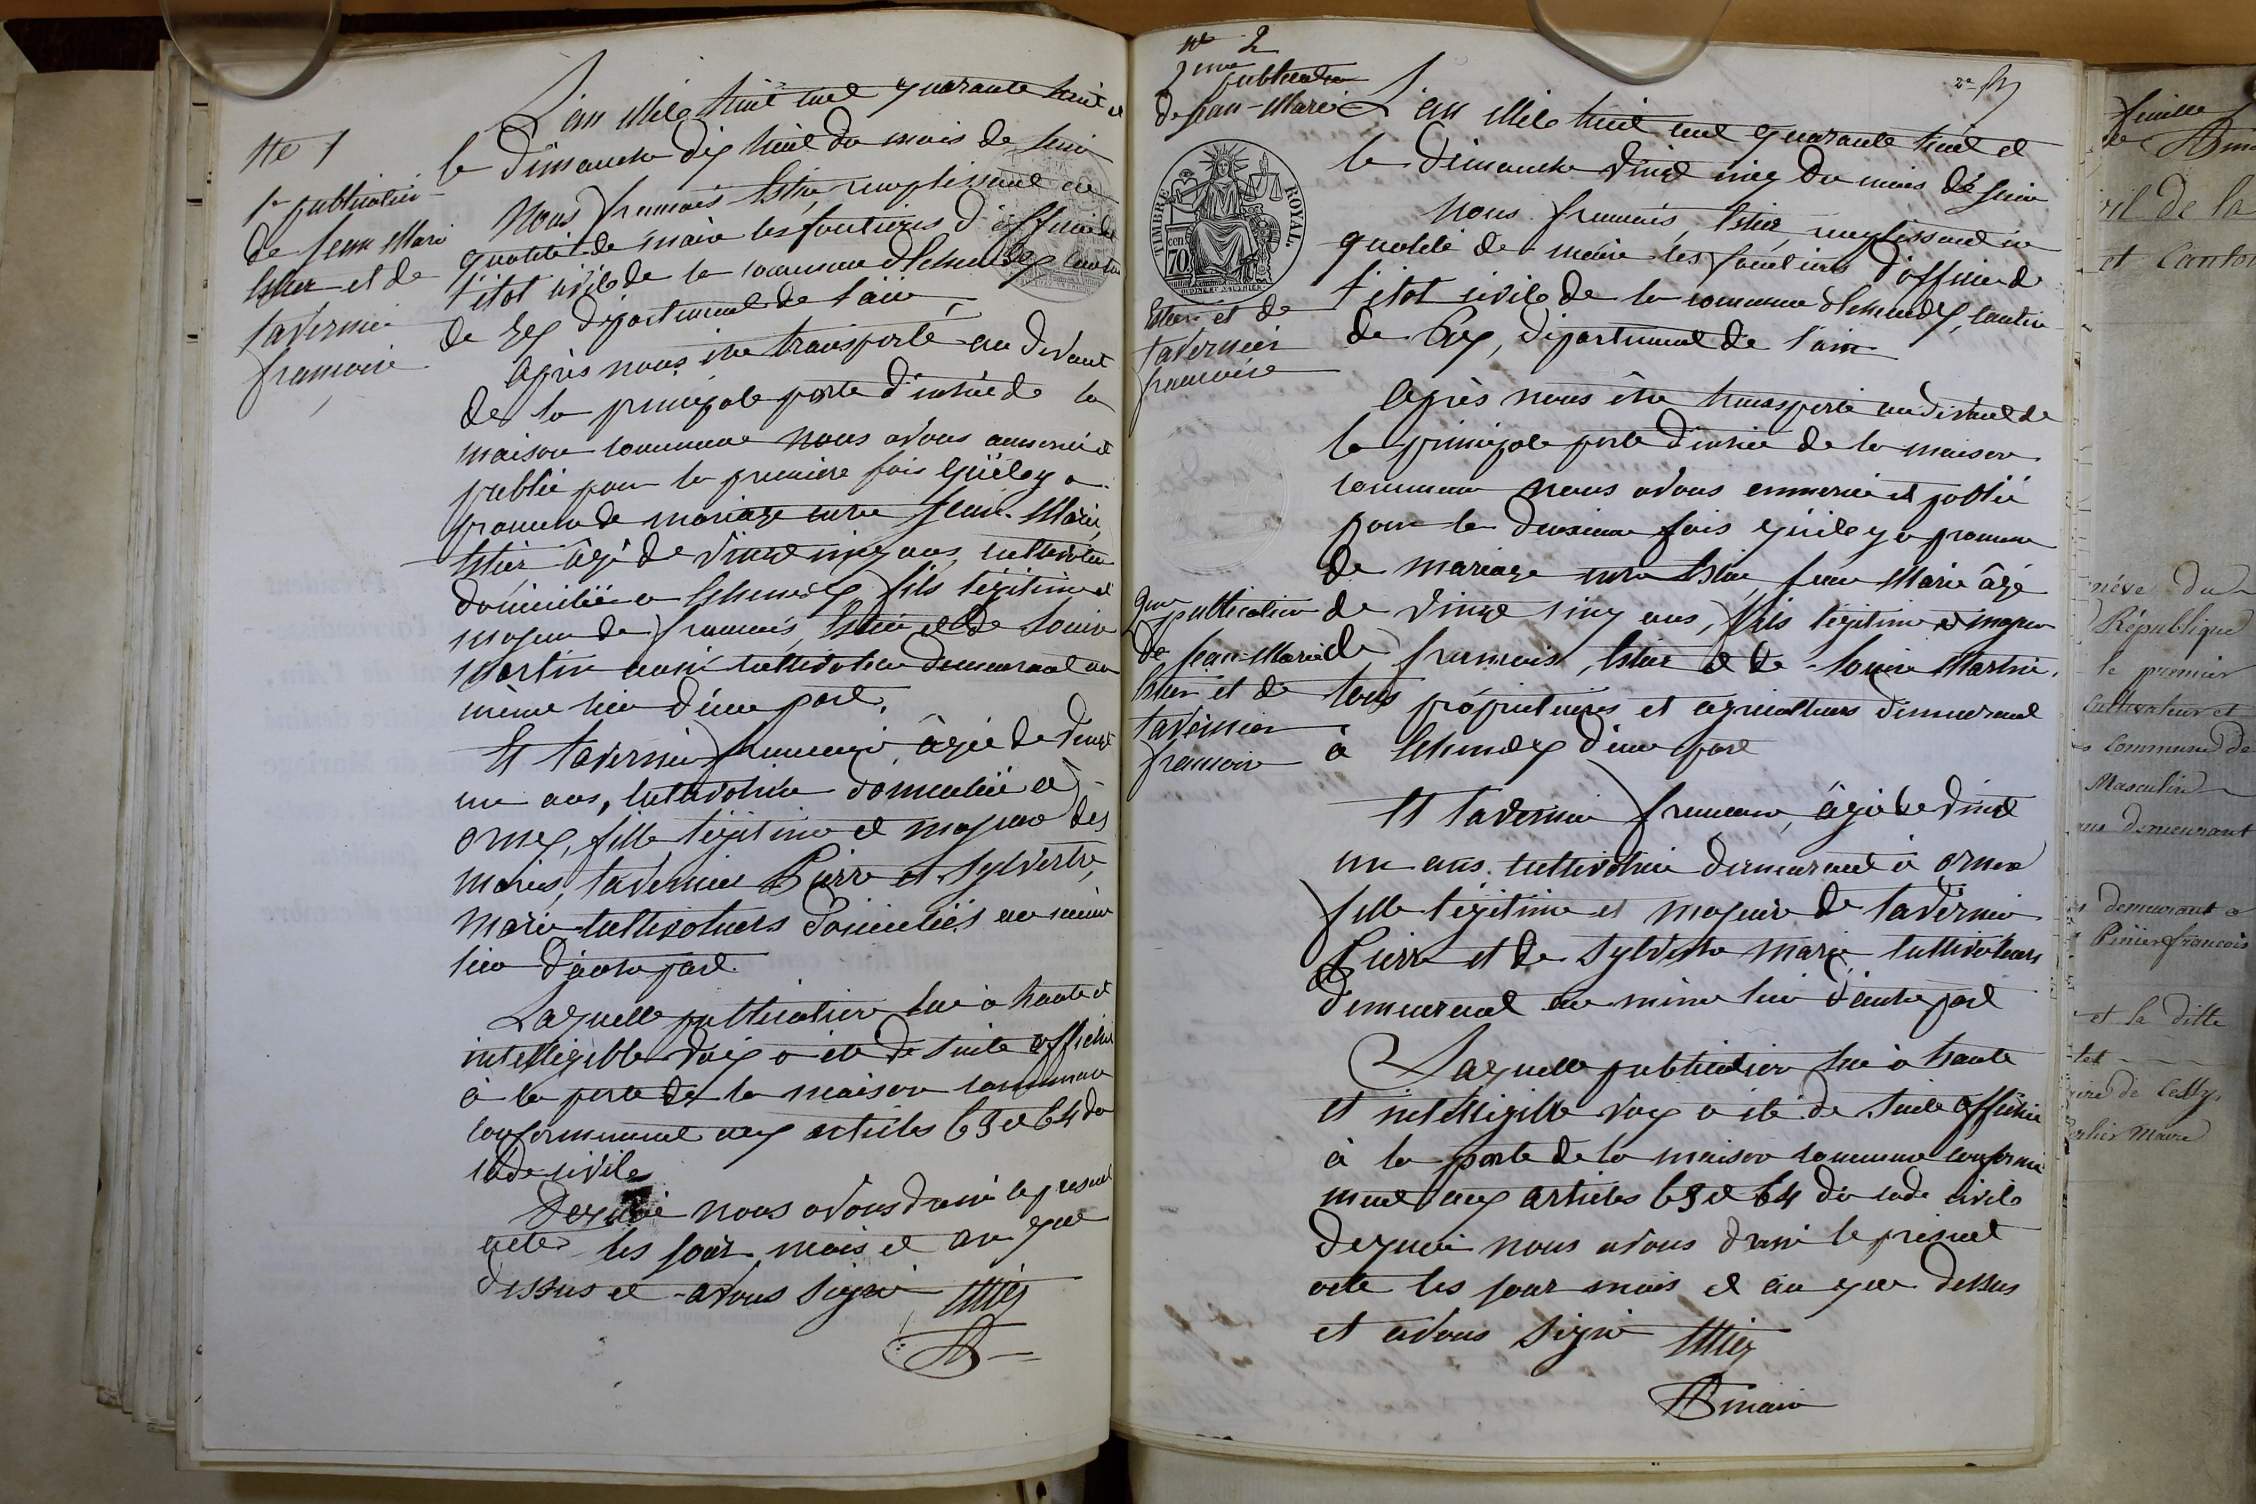 No 1
1re publication
de Jean Marie
Estier et de
Tavernier
françoise
L'an Mil huit cent quarante huit et
le Dimanche dix huit du mois de Juin
Nous François Estier, remplissant en
qualité de maire les fonctions d'officier de
l'état civil de la commune d'Echenevex canton
de Gex département de l'ain,
Après nous être transporté au devant
de la principale porte d'entrée de la
maison commune nous avons annoncé et
publié pour la première fois qu'il y a
promesse de mariage entre Jean-Marie,
Estier âgé de vingt cinq ans, cultivateur
domicilié a Echenevex fils légitime et
majeur de françois, Estier et de Louise
Martin aussi cultivateur demeurant au
même lieu d'une part,
Et Tavernier françoise, âgée de vingt
un ans, cultivatrice domiciliée à
ornex, fille légitime et majeure des
mariés, Tavernier Pierre et Sylvestre,
Marie cultivateurs domiciliés au même
lieu d'autre part.
Laquelle publication lue à haute et
intelligible voix a été de suite affichée
à la porte de la maison commune
conformément aux articles 63 et 64 du
code civil
De quoi nous avons dressé le présent
acte les jour mois et an que
dessus et avons signé Estier
No 2
2me publication
de Jean-Marie
TIMBRE ROYAL.
70 cen
Estier et de
Tavernier
françoise
L'an Mil huit cent quarante huit et
le Dimanche vingt cinq du mois de Juin
Nous françois, Estier, remplissant en
qualité de maire les fonctions d'officier de
l'état civil de la commune d'Echenevex, canton
de Gex, département de l'ain
Après nous être transporté au devant de
la principale porte d'entrée de la maison
commune nous avons annoncé et publié
pour la deuxième fois qu'il y a promesse
de mariage entre Estier, Jean Marie âgé
de vingt cinq ans, fils légitime et majeur
de françois, Estier et de Louise Martin,
tous propriétaires et agriculteurs demeurant
à Echenevex d'une part
2me publication
de Jean-Marie
Estier et de
Tavernier
françoise
Et Tavernier françoise, âgée de vingt
un ans. cultivatrice demeurant à ornex
fille légitime et majeure de Tavernier
Pierre et de Sylvestre Marie, cultivateurs
demeurant au même lieu d'autre part
Laquelle publication lue à haute
et intelligible voix a été de suite affichée
à la porte de la maison commune conformé
ment aux articles 63 et 64 du code civil
De quoi nous avons dressé le présent
acte les jour mois et an que dessus
et avons signé Estier
maire
feuille
de
vil de la
et Canton
République
le premier
Cultivateur et
commune de
Masculin
demeurant
demeurant a
françois
et la ditte
Maire